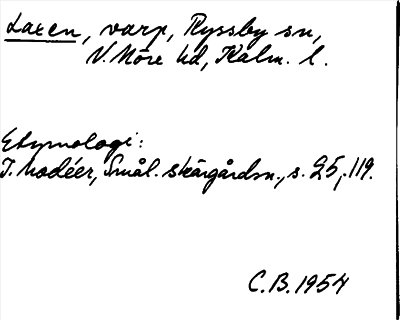 Laxen, varp, Ryssby sn,
N. Möre hd, Kalm. l.
Etymologi:
I. Modéer, Smål. skärgårdsn., s. 25, 119.
C.B. 1954